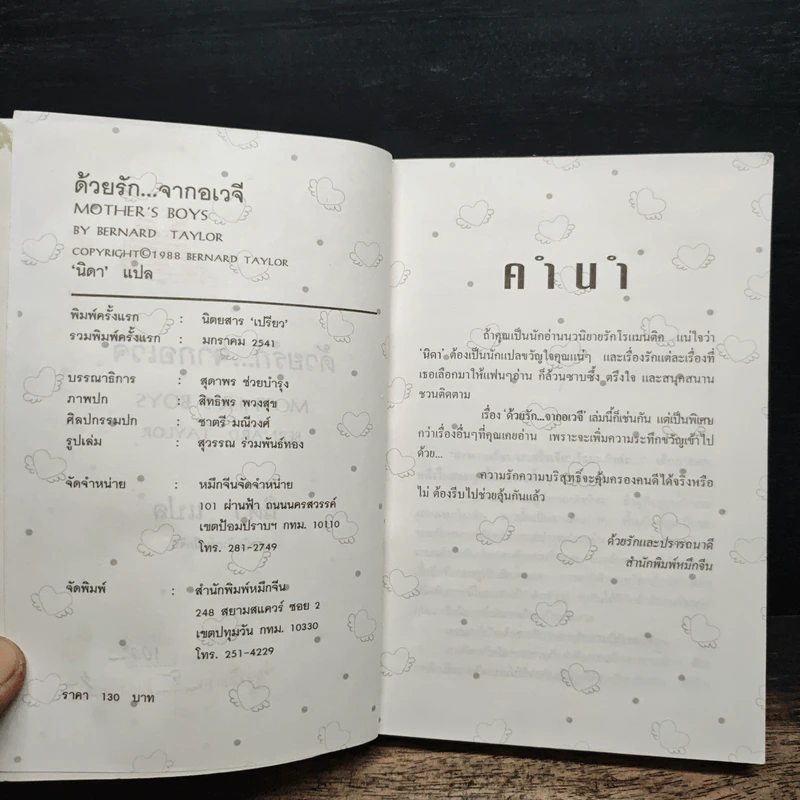 ด้วยรัก...จากอเวจี
MOTHER'S BOYS
BY BERNARD TAYLOR
COPYRIGHT©1988 BERNARD TAYLOR
'นิดา' แปล
พิมพ์ครั้งแรก : นิตยสาร 'เปรียว'
รวมพิมพ์ครั้งแรก : มกราคม 2541
บรรณาธิการ : สุดาพร ช่วยบำรุง
ภาพปก : สิทธิพร พวงสุข
ศิลปกรรมปก : ชาตรี มณีวงศ์
รูปเล่ม : สุวรรณ ร่วมพันธ์ทอง
จัดจำหน่าย : หมึกจีนจัดจำหน่าย
101 ผ่านฟ้า ถนนนครสวรรค์
เขตป้อมปราบฯ กทม. 10110
โทร. 281-2749
จัดพิมพ์ : สำนักพิมพ์หมึกจีน
248 สยามสแควร์ ซอย 2
เขตปทุมวัน กทม. 10330
โทร. 251-4229
ราคา 130 บาท
คำนำ
ถ้าคุณเป็นนักอ่านนวนิยายรักโรแมนติค แน่ใจว่า
'นิดา' ต้องเป็นนักแปลขวัญใจคุณแน่ๆ และเรื่องรักแต่ละเรื่องที่
เธอเลือกมาให้แฟนๆอ่าน ก็ล้วนซาบซึ้ง ตรึงใจ และสนุกสนาน
ชวนติดตาม
เรื่อง 'ด้วยรัก...จากอเวจี' เล่มนี้ก็เช่นกัน แต่เป็นพิเศษ
กว่าเรื่องอื่นๆที่คุณเคยอ่าน เพราะจะเพิ่มความระทึกขวัญเข้าไป
ด้วย...
ความรักความบริสุทธิ์จะคุ้มครองคนดีได้จริงหรือ
ไม่ ต้องรีบไปช่วยลุ้นกันแล้ว
ด้วยรักและปรารถนาดี
สำนักพิมพ์หมึกจีน